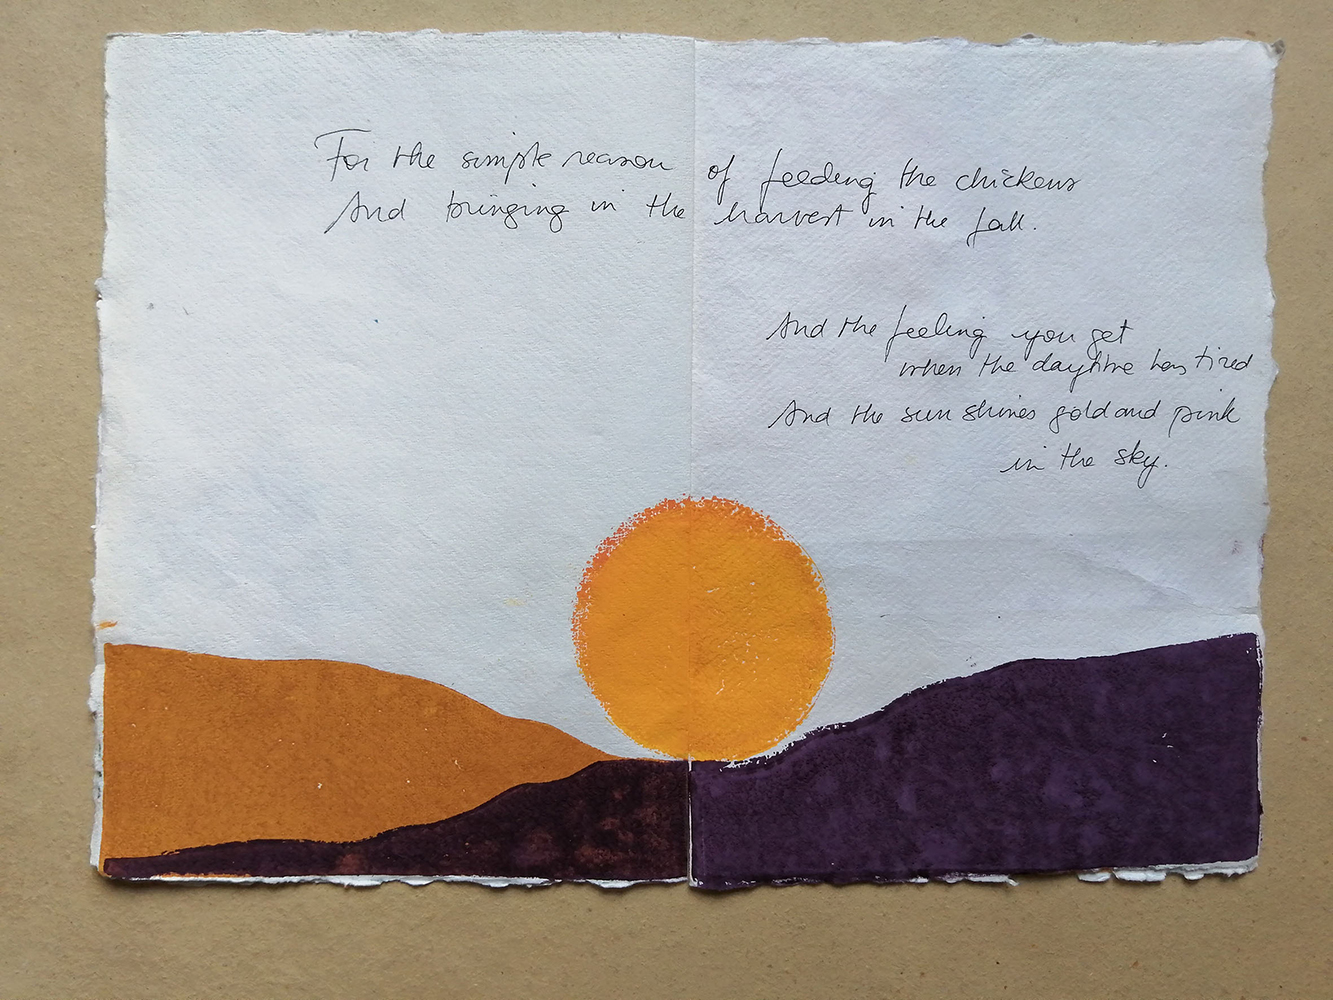 For the simple reason of feeding the chickens
And bringing in the harvest in the fall.
And the feeling you get
when the daytime has tired
And the sun shines gold and pink
in the sky.